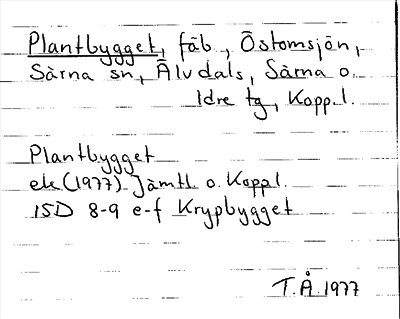 Plantbygget, fäb, Östomsjön,
Särna sn, Älvdals, Särna o.
Idre tg, Kopp.l.
Plantbygget
ek (1977) Jämtl o. Koppl.
15D 8-9 e-f Krypbygget
T.Å.1977